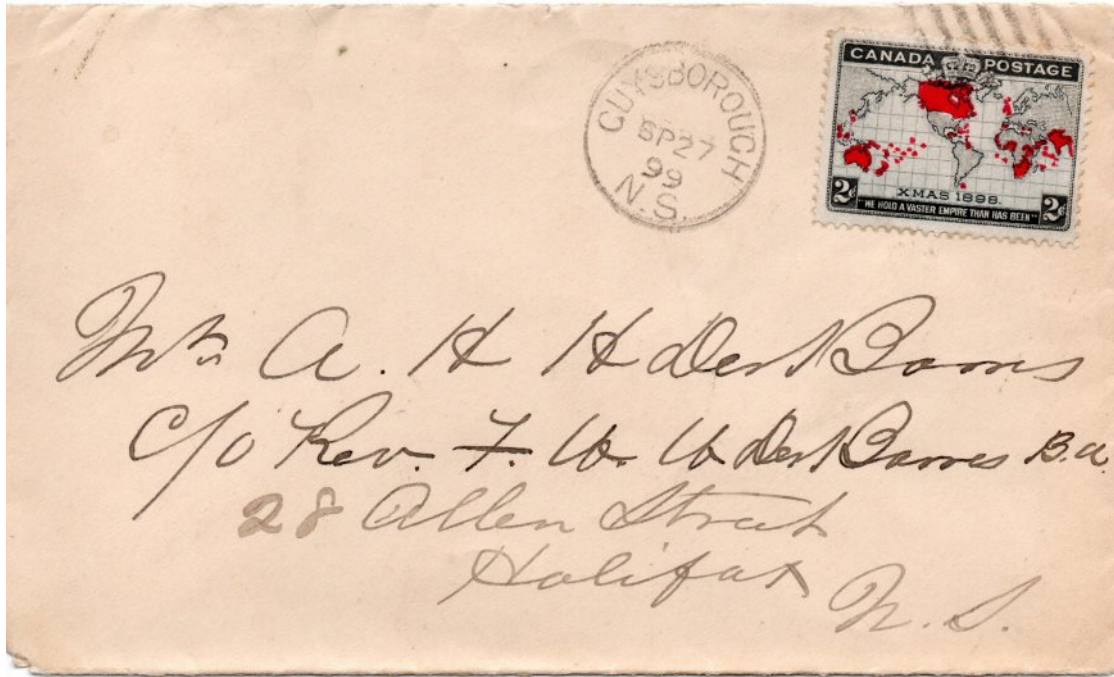 GUYSBOROUGH
SP 27
99
N.S.
CANADA POSTAGE
XMAS 1898.
2c 2c
"WE HOLD A VASTER EMPIRE THAN HAS BEEN"
Mrs A. H H DesBarres
c/o Rev. F. W. W DesBarres B.A.
28 Allen Street
Halifax
N. S.